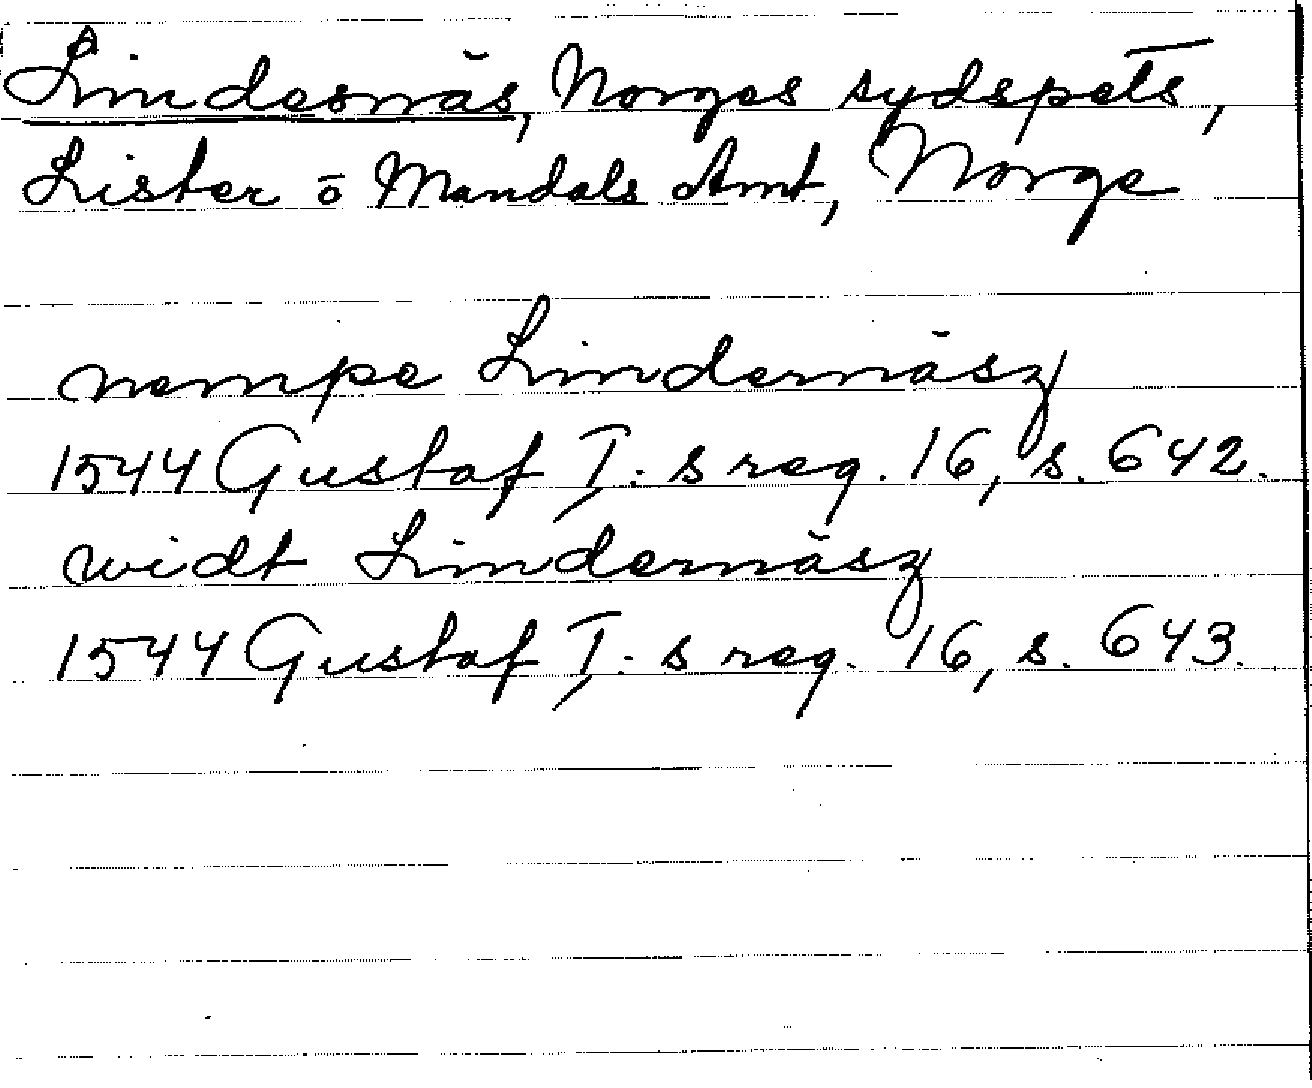 Lindesnäs, Norges sydspets,
Lister o Mandals Amt, Norge
nempe Lindernäsz
1544 Gustaf I: s reg. 16, s. 642.
widt Lindernäsz
1544 Gustaf I: s reg. 16, s. 643.